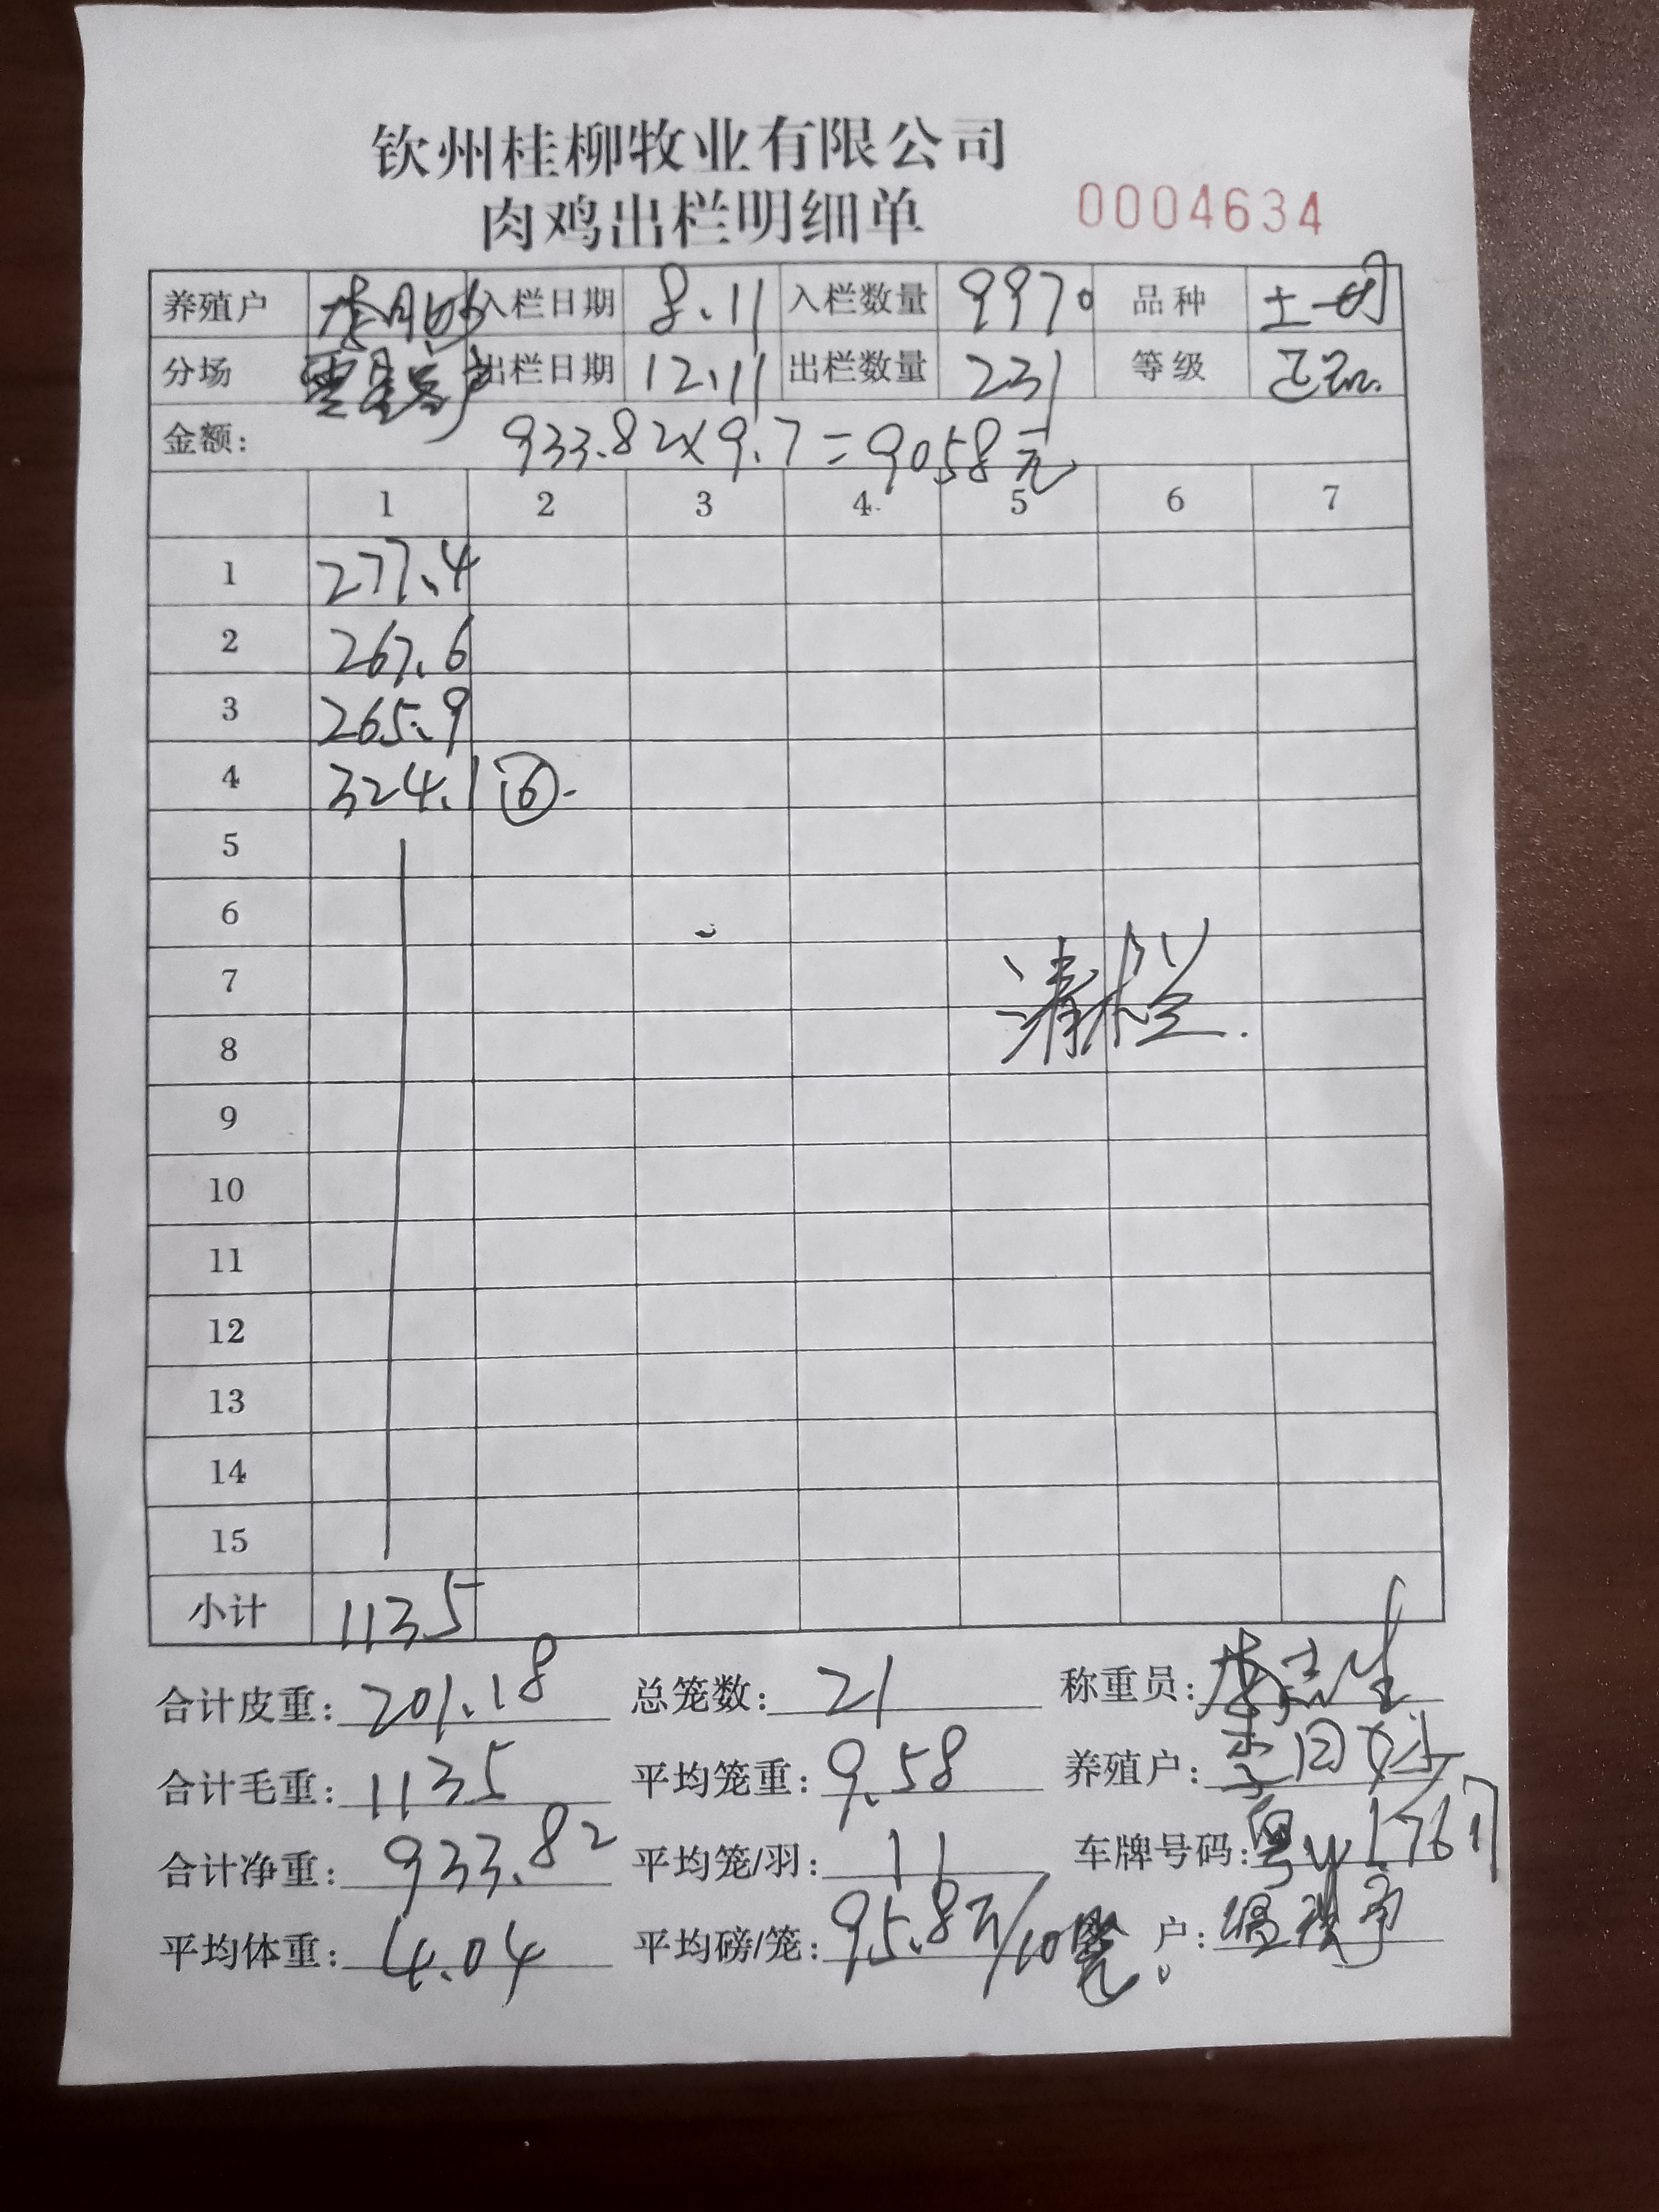 钦州桂柳牧业有限公司
肉鸡出栏明细单 0004634
养殖户 入栏日期 8.11 入栏数量 9970 品种 土一
分场 出栏日期 12.11 出栏数量 231 等级 正品
金额: 933.82×9.7=9058元
1 2 3 4 5 6 7
1 277.4
2 267.6
3 265.9
4 324.1 ⑥
5
6
7 清栏
8
9
10
11
12
13
14
15
小计 1135
合计皮重: 201.18 总笼数: 21 称重员: 李志生
合计毛重: 1135 平均笼重: 9.58 养殖户: 李
合计净重: 933.82 平均笼/羽: 11 车牌号码: 粤
平均体重: 4.04 平均磅/笼: 95.8斤/10笼 户: